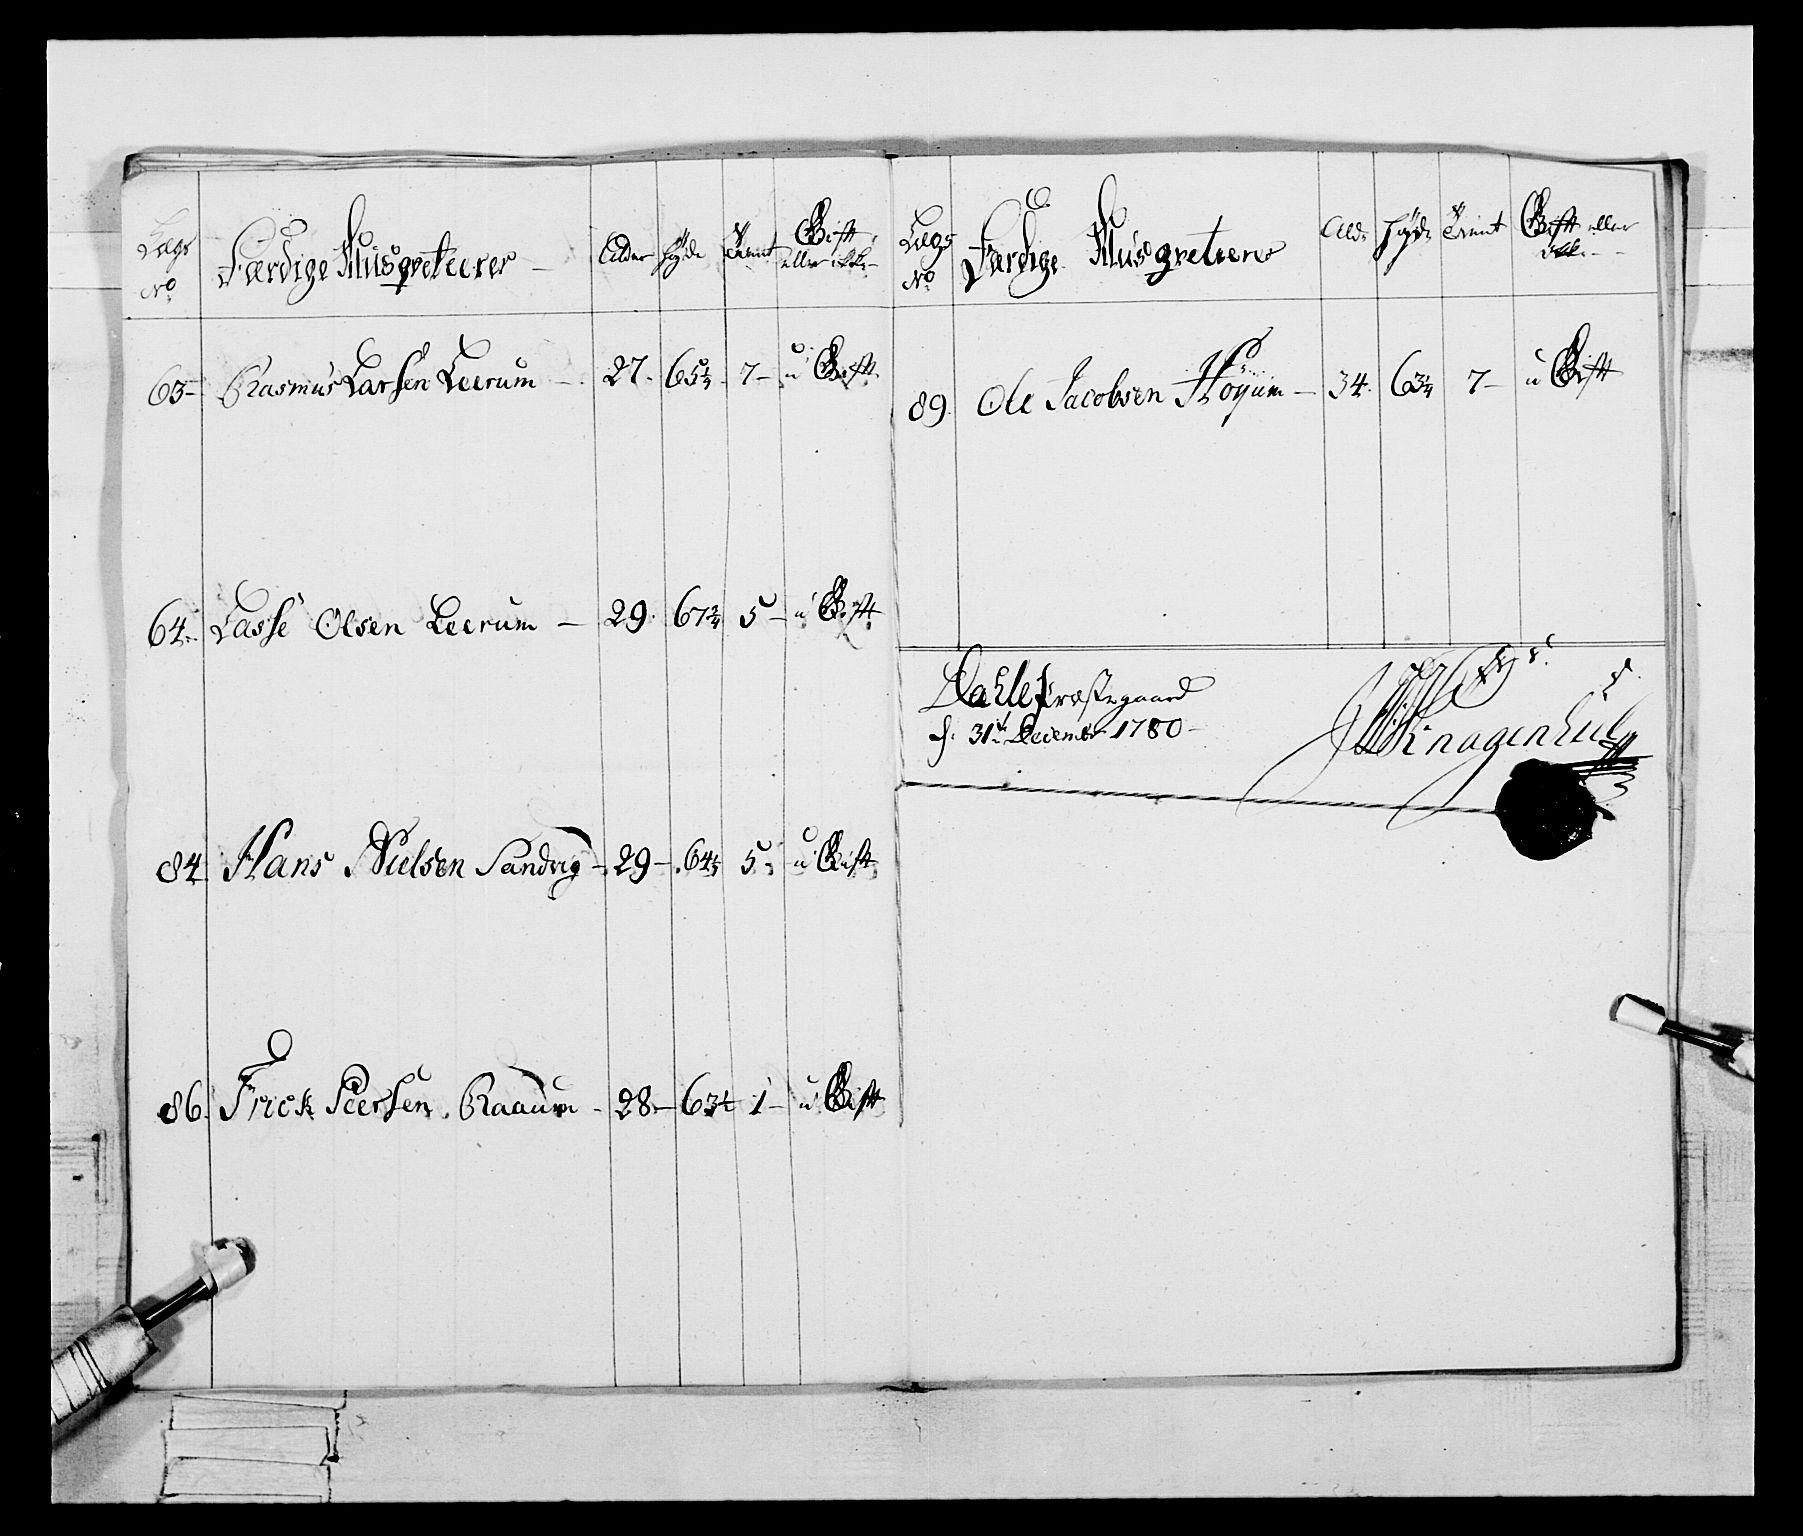 Lægs No Færdige Musqveteerer Alder Høyde Tient Gift eller ikke
63 Rasmus Larsen Leerum 27 65¼ 7 u Gift
64 Lasse Olsen Leerum 29 67¾ 5 u Gift
84 Hans Nielsen Sandvig 29 64½ 5 u Gift
86 Frick Peersen Raaum 28 63¼ 1 u Gift
Lægs No Færdige Musqveteerer Alder Høyde Tient Gift eller ikke
89 Ole Jacobsen Høyum 34 63¼ 7 u Gift
Dahle Præstegaard
d. 31te December 1780
Knagenhielm